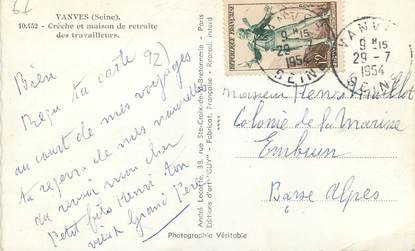 VANVES (Seine).
10.452 - Crèche et maison de retraite
des travailleurs.
Bien
Reçu ta carte
au cours de mes voyages
de mes nouvelles
au revoir mon cher
Petit fils Henri ton
vieux Grand Père
André Leconte, 38, rue Ste-Croix-de-la-Bretonnerie - Paris
Editions d'art "GUY" - Fabricat. Française - Reprod. Interd.
Photographie Véritable
REPUBLIQUE FRANÇAISE
VANVES
9 H 15
29 -7
1954
SEINE
VANVES
9 H 15
29 -7
1954
SEINE
Monsieur Henri
Colonie de la Marine
Embrun
Basse Alpes